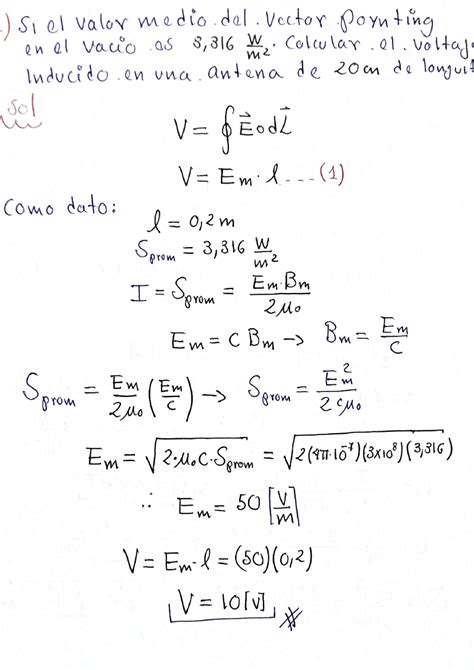 .) Si el valor medio del vector Poynting
en el vacio es 3,316 W/m². Calcular el voltaj
Inducido en una antena de 20cm de longuit
Sol
V = ∮ E⃗ o dL⃗
V = Em · l ---- (1)
Como dato:
l = 0,2 m
Sprom = 3,316 W/m²
I = Sprom = Em·Bm / 2μo
Em = C Bm → Bm = Em/C
Sprom = Em/2μo (Em/C) → Sprom = Em²/2cμo
Em = √2·μo C·Sprom = √2(4π·10⁻⁷)(3×10⁸)(3,316)
∴ Em = 50 [V/m]
V = Em·l = (50)(0,2)
V = 10[V]